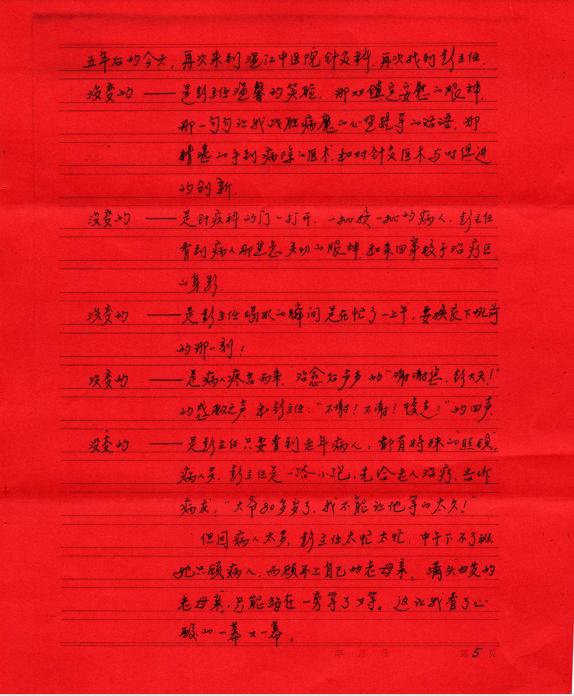 五年后的今天，再次来到温江中医院针灸科，再次找到彭主任。
没变的 —— 是彭主任温馨的笑脸，那双镇定安慰的眼神，
那一句句让我战胜病魔的心理疏导的话语，那
精湛的手到病除的医术，和对针灸医术与时俱进
的创新。
没变的 —— 是针灸科的门一打开，一批接一批的病人，彭主任
看到病人那焦急关切的眼神，和来回穿梭于治疗区
的身影。
没变的 —— 是彭主任喝水的瞬间是在忙了一上午，要换衣下班前
的那一刻！
没变的 —— 是病人疼告而来，治愈后声声的“谢谢您，彭大夫！”
的感激之声和彭主任：“不谢！不谢！慢走！”的回声
没变的 —— 是彭主任只要看到老年病人，都有特殊的“照顾”，
病人多，彭主任是一路小跑，先给老人治疗，告诉
病友，“大爷80多岁了，我不能让他等的太久！”
但因病人太多，彭主任太忙太忙，中午下不了班，
她只顾病人，而顾不上自己的老母亲，满头白发的
老母亲，只能站在一旁等了又等。这让我看了心
酸的一幕又一幕。
第5页